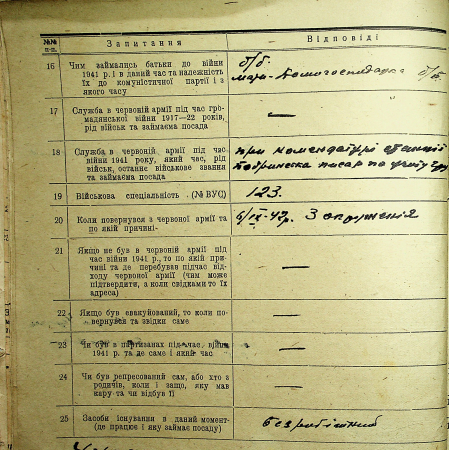 №№ п-п.
Запитання
Відповіді
16
Чим займались батьки до війни
1941 р. і в даний час та належність
їх до комуністичної партії і з
якого часу
б/б.
мати-домогосподарка б/п.
17
Служба в червоній армії під час гро-
мадянської війни 1917—22 років,
рід військ та займаєма посада
—
18
Служба в червоній армії під час
війни 1941 року, який час, рід
військ, останнє військове звання
та займаєма посада
при комендатурі станції
писар по
19
Військова спеціальність (№ ВУС)
123.
20
Коли повернувся з червоної армії та
по якій причині-
6/IX-42р. З оточенія
21
Якщо не був в червоній армії під
час війни 1941 р., то по якій при-
чині та де перебував підчас від-
ходу червоної армії (чим може
підтвердити, з коли свідками то їх
адреса)
—
22
Якщо був евакуйований, то коли по-
вернувся та звідки саме
—
23
Чи був в партизанах під час війни
1941 р. та де саме і який час
—
24
Чи був репресований сам, або хто з
родичів, коли і защо, яку мав
кару та чи відбув 1)
—
25
Засоби існування в даний момент-
(де працює і яку займає посаду)
безробітний